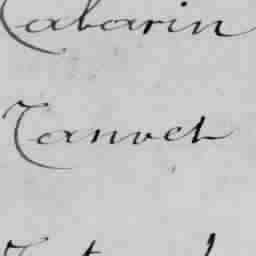 Tabarin
Tanvet